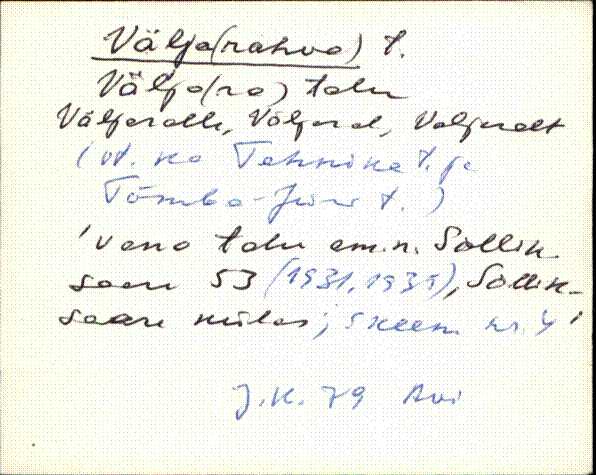 Välja(rahva) t.
Välja(ra) talu
Väljaralle, Väljaral, Väljaralt
(vt. ka Tehnika t. ja
Tõmba-Jüri t.)
'vana talu em.n. Sallik
saare 53 (1931, 1939), Sallik-
saare külas; skeem nr. 4'
J.K. 79 Avi